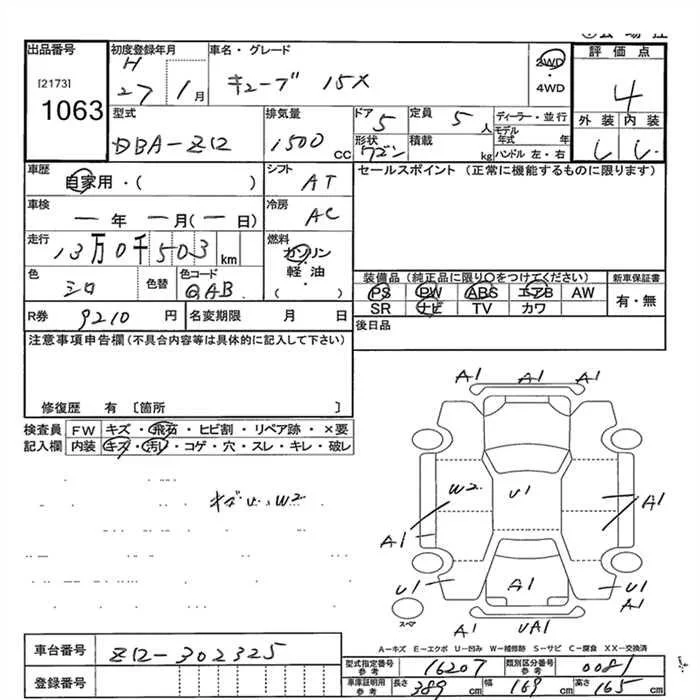 出品番号 初度登録年月 車名・グレード 評価点
[2173] 1063 H 27 1月 キューブ 15X 2WD・4WD 4
型式 排気量 ドア 定員 ディーラー・並行 外装 内装
DBA-Z12 1500cc 5 5人 モデル年式 年
形状 ワゴン 積載 kg ハンドル 左・右
車歴 自家用・( ) シフト AT セールスポイント (正常に機能するものに限ります)
車検 ー年 ー月(ー日) 冷房 AC
走行 13万0千503km 燃料 ガソリン 軽油・( )
色 シロ 色替 色コード QAB
装備品 (純正品に限り○をつけてください) 新車保証書
PS PW ABS エアB AW 有・無
SR ナビ TV カワ
R券 9210円 名変期限 月 日 後日品
注意事項申告欄 (不具合内容等は具体的に記入して下さい)
修復歴 有 [箇所 ]
検査員 FW キズ・飛石・ヒビ割・リペア跡・×要
記入欄 内装 キズ・汚れ・コゲ・穴・スレ・キレ・破レ
W2
A1 A1 A1
W2 U1 A1
A1
U1 A1 U1
A1
スペア
A1 UA1
A-キズ E-エクボ U-凹み W-補修跡 S-サビ C-腐食 XX-交換済
車台番号 Z12-302325
型式指定番号 参考 16207 類別区分番号 参考 0081
登録番号 車庫証明用 参考 長さ 389cm 幅 169cm 高さ 165cm